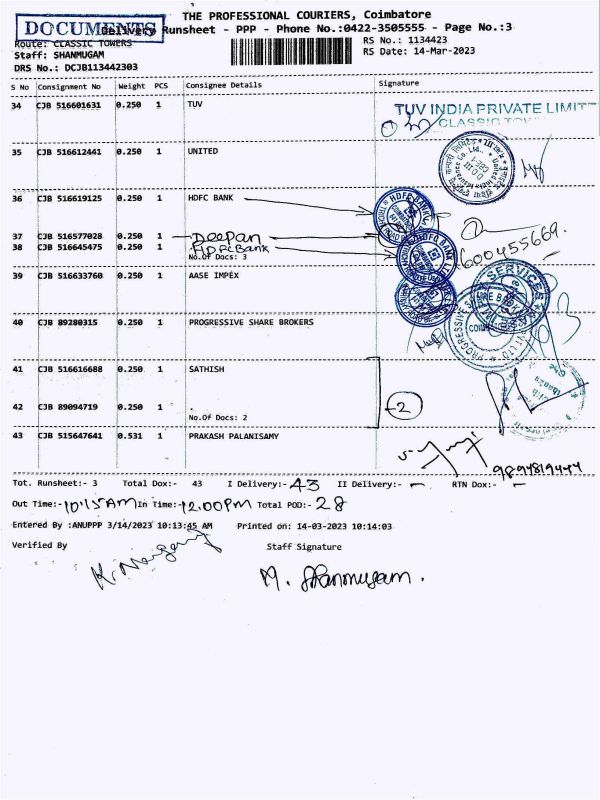 THE PROFESSIONAL COURIERS, Coimbatore
DOCUMENTS
Delivery Runsheet - PPP - Phone No.:0422-3505555 - Page No.:3
Route: CLASSIC TOWERS
RS No.: 1134423
Staff: SHANMUGAM
RS Date: 14-Mar-2023
DRS No.: DCJB113442303
S No Consignment No Weight PCS Consignee Details Signature
34 CJB 516601631 0.250 1 TUV
TUV INDIA PRIVATE LIMIT
CLASSIC TOW
35 CJB 516612441 0.250 1 UNITED
36 CJB 516619125 0.250 1 HDFC BANK
HDFC BANK
37 CJB 516577028 0.250 1 DEEPAN
38 CJB 516645475 0.250 1 HDFC Bank
600455669.
No.Of Docs: 3
HDFC BANK
39 CJB 516633760 0.250 1 AASE IMPEX
SERVICES
40 CJB 89280315 0.250 1 PROGRESSIVE SHARE BROKERS
PROGRESSIVE
41 CJB 516616688 0.250 1 SATHISH
42 CJB 89094719 0.250 1 .
2
No.Of Docs: 2
43 CJB 515647641 0.531 1 PRAKASH PALANISAMY
9894819444
Tot. Runsheet:- 3 Total Dox:- 43 I Delivery:- 43 II Delivery:- – RTN Dox:- –
Out Time:- 10:15 AM In Time:- 12:00 PM Total POD:- 28
Entered By :ANUPPP 3/14/2023 10:13:45 AM Printed on: 14-03-2023 10:14:03
Verified By Staff Signature
M. Shanmugam.